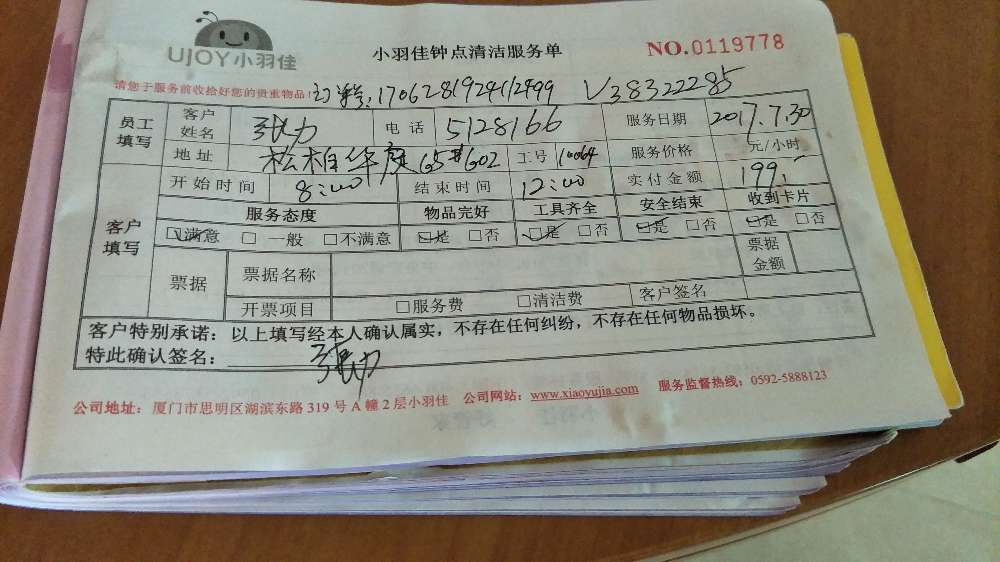 UJOY小羽佳
小羽佳钟点清洁服务单 NO.0119778
请您于服务前收拾好您的贵重物品! V38322285
员工填写 客户姓名 张力 电话 5128166 服务日期 2017.7.30
地址 松柏华庭65#602 工号 10064 服务价格 元/小时
开始时间 8:00 结束时间 12:00 实付金额 199.-
客户填写 服务态度 物品完好 工具齐全 安全结束 收到卡片
☑满意 □一般 □不满意 ☑是 □否 ☑是 □否 ☑是 □否 ☑是 □否
票据 票据名称 票据金额
开票项目 □服务费 □清洁费 客户签名
客户特别承诺：以上填写经本人确认属实，不存在任何纠纷，不存在任何物品损坏。
特此确认签名： 张力
公司地址：厦门市思明区湖滨东路319号A幢2层小羽佳 公司网站：www.xiaoyujia.com 服务监督热线：0592-5888123